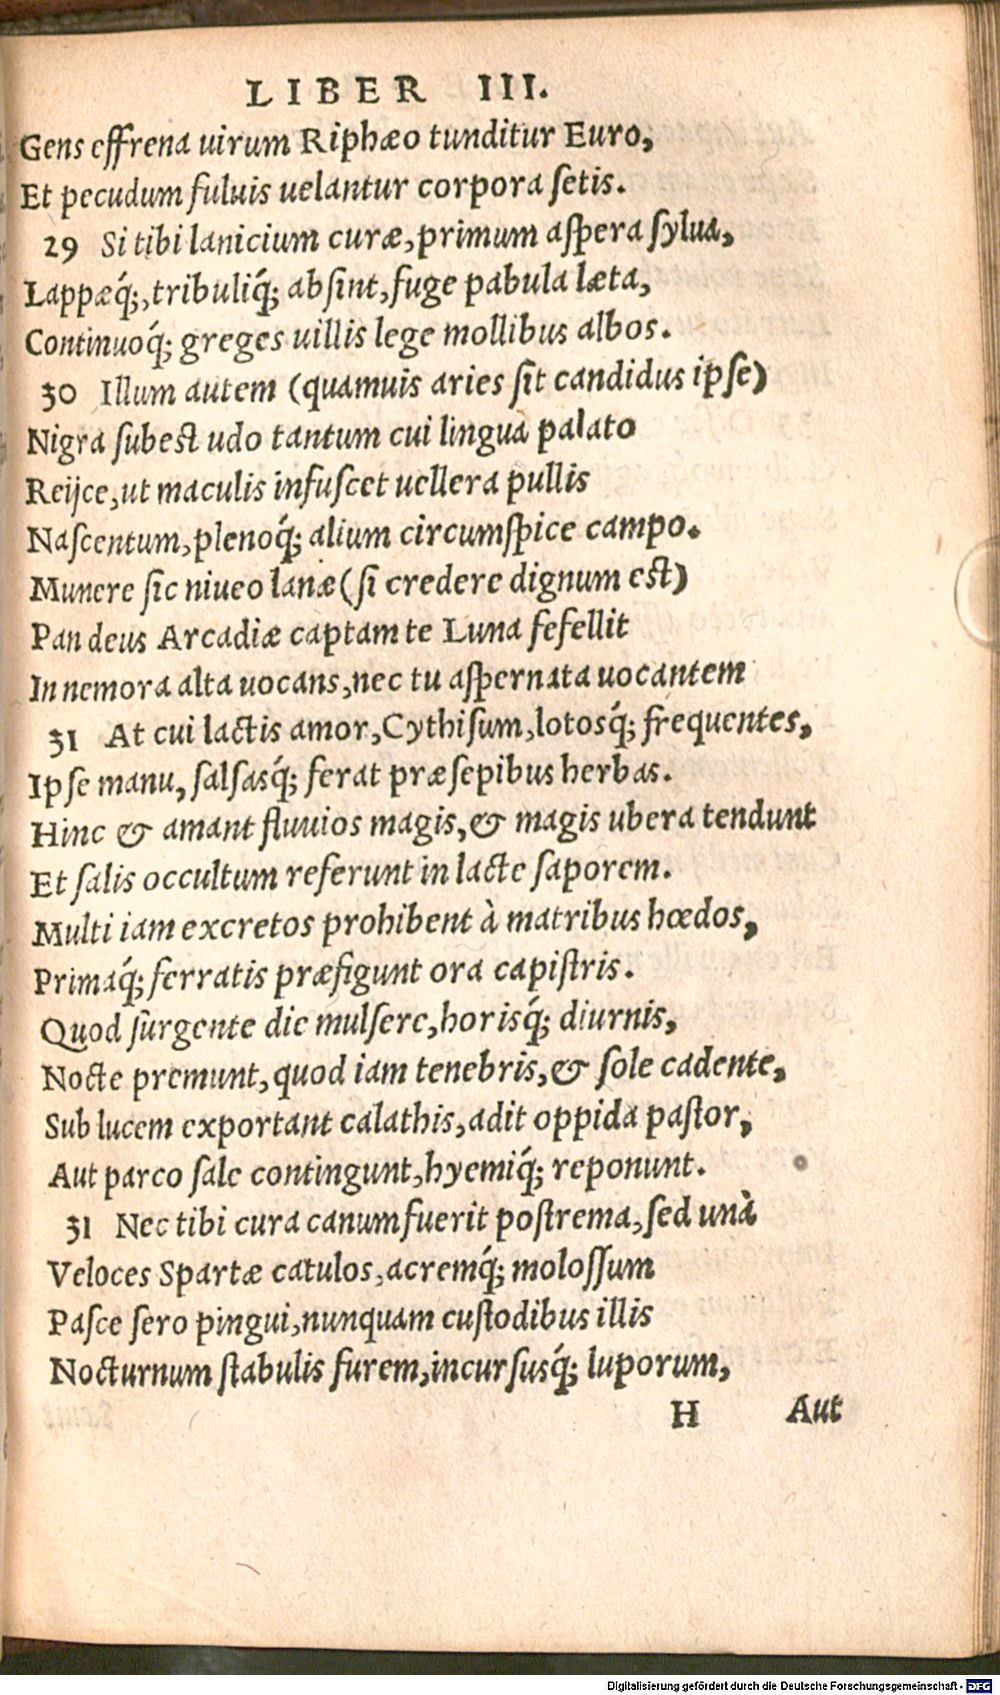 LIBER III.
Gens effrena uirum Riphæo tunditur Euro,
Et pecudum fuluis uelantur corpora ſetis.
29 Si tibi lanicium curæ, primum aſpera ſylua,
Lappæq́;, tribuliq́; abſint, fuge pabula læta,
Continuoq́; greges uillis lege mollibus albos.
30 Illum autem (quamuis aries ſit candidus ipſe)
Nigra ſubest udo tantum cui lingua palato
Reijce, ut maculis infuſcet uellera pullis
Naſcentum, plenoq́; alium circumſpice campo.
Munere ſic niueo lanæ (ſi credere dignum est)
Pan deus Arcadiæ captam te Luna fefellit
In nemora alta uocans, nec tu aſpernata uocantem
31 At cui lactis amor, Cythiſum, lotosq́; frequentes,
Ipſe manu, ſalſasq́; ferat præſepibus herbas.
Hinc & amant fluuios magis, & magis ubera tendunt
Et ſalis occultum referunt in lacte ſaporem.
Multi iam excretos prohibent à matribus hœdos,
Primaq́; ferratis præfigunt ora capiſtris.
Quod ſurgente die mulſere, horisq́; diurnis,
Nocte premunt, quod iam tenebris, & ſole cadente,
Sub lucem exportant calathis, adit oppida paſtor,
Aut parco ſale contingunt, hyemiq́; reponunt.
31 Nec tibi cura canum fuerit poſtrema, ſed unà
Veloces Spartæ catulos, acremq́; moloſſum
Paſce ſero pingui, nunquam cuſtodibus illis
Nocturnum ſtabulis furem, incurſusq́; luporum,
H Aut
Digitalisierung gefördert durch die Deutsche Forschungsgemeinschaft - DFG